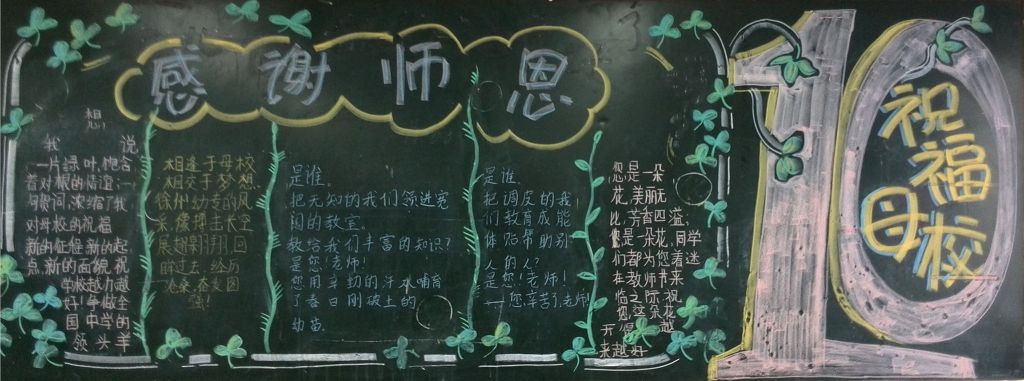 感谢师恩
想,
我 说
一片绿叶,饱含
着对根的情谊;一
句慰问,浓缩了我
对母校的祝福
新的征程新的起
点新的面貌祝
学校越办越
好!争做全
国中学的
领头羊
相逢于母校
相交于梦想.
徐州经专的风
采,像塔主长空
展翅翱翔!回
眸过去,经历
沧桑,奋发图
强!
是谁,
把无知的我们领进宽
阔的教室,
教给我们丰富的知识?
是您!老师!
您用辛勤的汗水哺育
了春日刚破土的
幼苗.
是谁,
把调皮的我
们教育成能
体贴帮助别
人的人?
是您!老师!
——您辛苦了,老师
您是一朵
花,美丽无
比,芳香四溢;
您是一朵花,同学
们都为您着迷
在教师节来
临之际,祝
您这朵花
开得越
来越好
10
祝福
母校